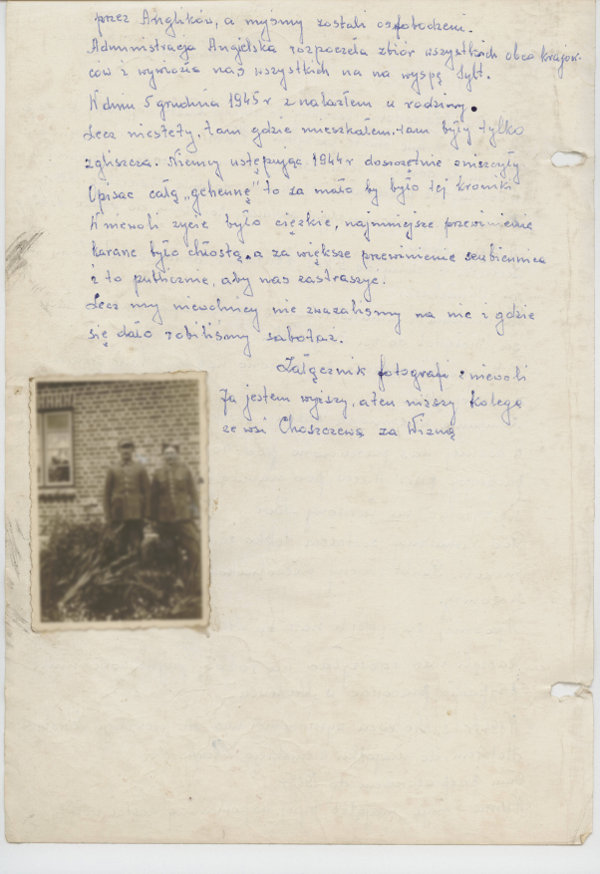 przez Anglików, a myśmy zostali osfobodzeni.
Administracja Angielska rozpoczęła zbiór wszystkich obco krajow-
ców i wywiozła nas wszystkich na na wyspę Sylt.
W dniu 5 grudnia 1945 r znalazłem u rodziny.
Lecz niestety, tam gdzie mieszkałem, tam były tylko
zgliszcza. Niemcy ustępując 1944 r doszczętnie zniszczyły
Opisac całą „gehennę" to za mało by było tej kroniki
W niewoli zycie było ciężkie, najmniejsze przewinienie
karane było chłostą, a za większe przewinienie szubiennica
i to publicznie, aby nas zastraszyć.
Lecz my niewolnicy nie zwazalismy na nic i gdzie
się dało robiliśmy sabotaż.
Załącznik fotografi z niewoli
Ja jestem wyższy, a ten niższy kolega
ze wsi Choszczewa za Wizną